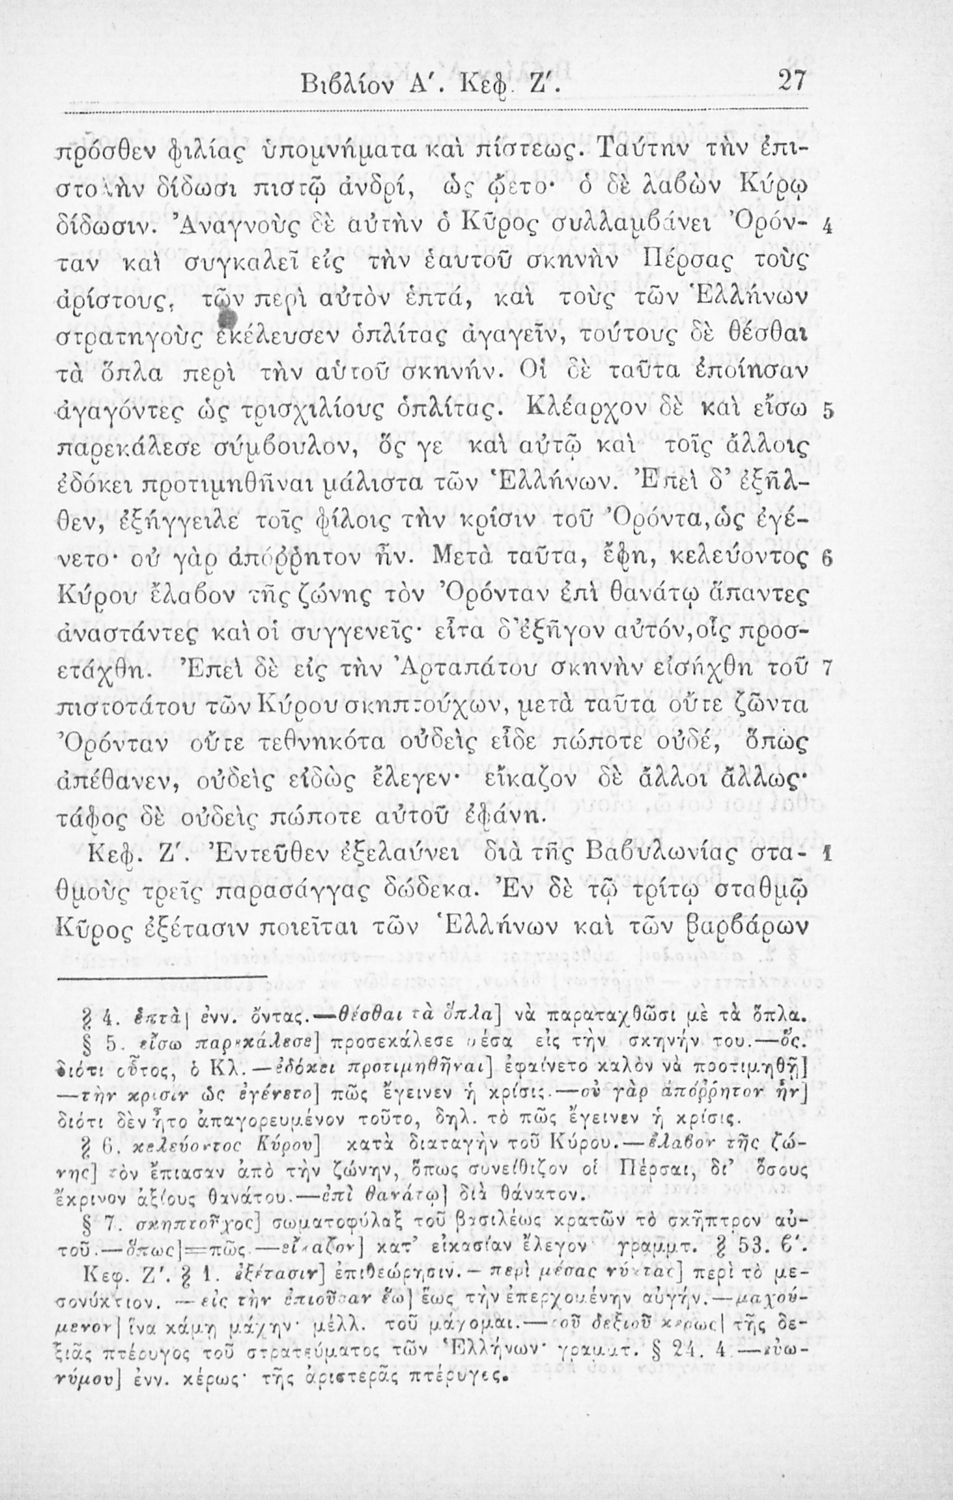 Βιβλίον Α΄. Κεφ. Ζ΄. 27
πρόσθεν φιλίας ὑπομνήματα καὶ πίστεως. Ταύτην τὴν ἐπι-
στολὴν δίδωσι πιστῷ ἀνδρί, ὡς ᾤετο· ὁ δὲ λαβὼν Κύρῳ
δίδωσιν. Ἀναγνοὺς δὲ αὐτὴν ὁ Κῦρος συλλαμβάνει Ὀρόν- 4
ταν καὶ συγκαλεῖ εἰς τὴν ἑαυτοῦ σκηνὴν Πέρσας τοὺς
ἀρίστους, τῶν περὶ αὐτὸν ἑπτά, καὶ τοὺς τῶν Ἑλλήνων
στρατηγοὺς ἐκέλευσεν ὁπλίτας ἀγαγεῖν, τούτους δὲ θέσθαι
τὰ ὅπλα περὶ τὴν αὑτοῦ σκηνήν. Οἱ δὲ ταῦτα ἐποίησαν
ἀγαγόντες ὡς τρισχιλίους ὁπλίτας. Κλέαρχον δὲ καὶ εἴσω 5
παρεκάλεσε σύμβουλον, ὅς γε καὶ αὐτῷ καὶ τοῖς ἄλλοις
ἐδόκει προτιμηθῆναι μάλιστα τῶν Ἑλλήνων. Ἐπεὶ δ' ἐξῆλ-
θεν, ἐξήγγειλε τοῖς φίλοις τὴν κρίσιν τοῦ Ὀρόντα, ὡς ἐγέ-
νετο· οὐ γὰρ ἀπόῤῥητον ἦν. Μετὰ ταῦτα, ἔφη, κελεύοντος 6
Κύρου ἔλαβον τῆς ζώνης τὸν Ὀρόνταν ἐπὶ θανάτῳ ἅπαντες
ἀναστάντες καὶ οἱ συγγενεῖς· εἶτα δ' ἐξῆγον αὐτόν, οἷς προσ-
ετάχθη. Ἐπεὶ δὲ εἰς τὴν Ἀρταπάτου σκηνὴν εἰσήχθη τοῦ 7
πιστοτάτου τῶν Κύρου σκηπτούχων, μετὰ ταῦτα οὔτε ζῶντα
Ὀρόνταν οὔτε τεθνηκότα οὐδεὶς εἶδε πώποτε οὐδέ, ὅπως
ἀπέθανεν, οὐδεὶς εἰδὼς ἔλεγεν· εἴκαζον δὲ ἄλλοι ἄλλως·
τάφος δὲ οὐδεὶς πώποτε αὐτοῦ ἐφάνη.
Κεφ. Ζ΄. Ἐντεῦθεν ἐξελαύνει διὰ τῆς Βαβυλωνίας στα- 1
θμοὺς τρεῖς παρασάγγας δώδεκα. Ἐν δὲ τῷ τρίτῳ σταθμῷ
Κῦρος ἐξέτασιν ποιεῖται τῶν Ἑλλήνων καὶ τῶν βαρβάρων
§ 4. ἑπτὰ] ἐνν. ὄντας.—θέσθαι τὰ ὅπλα] νὰ παραταχθῶσι μὲ τὰ ὅπλα.
§ 5. εἴσω παρεκάλεσε] προσεκάλεσε μέσα εἰς τὴν σκηνήν του.—ὅς.
διότι οὗτος, ὁ Κλ.—ἐδόκει προτιμηθῆναι] ἐφαίνετο καλὸν νὰ προτιμηθῇ]
—τὴν κρίσιν ὡς ἐγένετο] πῶς ἔγεινεν ἡ κρίσις.—οὐ γὰρ ἀπόῤῥητον ἦν]
διότι δὲν ἦτο ἀπαγορευμένον τοῦτο, δηλ. τὸ πῶς ἔγεινεν ἡ κρίσις.
§ 6. κελεύοντος Κύρου] κατὰ διαταγὴν τοῦ Κύρου.—ἔλαβον τῆς ζώ-
νης] τὸν ἔπιασαν ἀπὸ τὴν ζώνην, ὅπως συνείθιζον οἱ Πέρσαι, δι' ὅσους
ἔκρινον ἀξίους θανάτου.—ἐπὶ θανάτῳ] διὰ θάνατον.
§ 7. σκηπτοῦχος] σωματοφύλαξ τοῦ βασιλέως κρατῶν τὸ σκῆπτρον αὐ-
τοῦ.—ὅπως]=πῶς.—εἴκαζον] κατ' εἰκασίαν ἔλεγον· γραμμτ. § 53. 6΄.
Κεφ. Ζ΄. § 1. ἐξέτασιν] ἐπιθεώρησιν.—περὶ μέσας νύκτας] περὶ τὸ με-
σονύκτιον.—εἰς τὴν ἐπιοῦσαν ἕω] ἕως τὴν ἐπερχομένην αὐγήν.—μαχού-
μενον] ἵνα κάμῃ μάχην· μέλλ. τοῦ μάχομαι.—τοῦ δεξιοῦ κέρως] τῆς δε-
ξιᾶς πτέρυγος τοῦ στρατεύματος τῶν Ἑλλήνων· γραμματ. § 24. 4.—εὐω-
νύμου] ἐνν. κέρως· τῆς ἀριστερᾶς πτέρυγες.